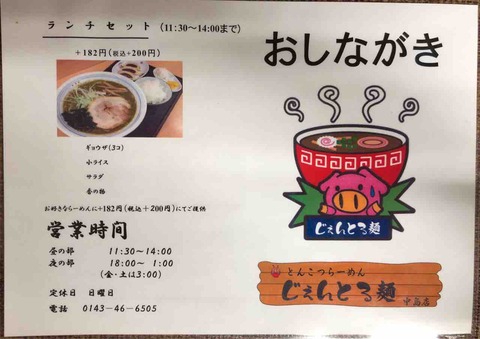 ランチセット (11:30〜14:00まで)
+182円(税込+200円)
ギョウザ(3コ)
小ライス
サラダ
香の物
お好きならーめんに+182円(税込+200円)にてご提供
営業時間
昼の部 11:30〜14:00
夜の部 18:00〜 1:00
(金・土は3:00)
定休日 日曜日
電話 0143-46-6505
おしながき
じぇんとる麺
とんこつらーめん
じぇんとる麺 中島店